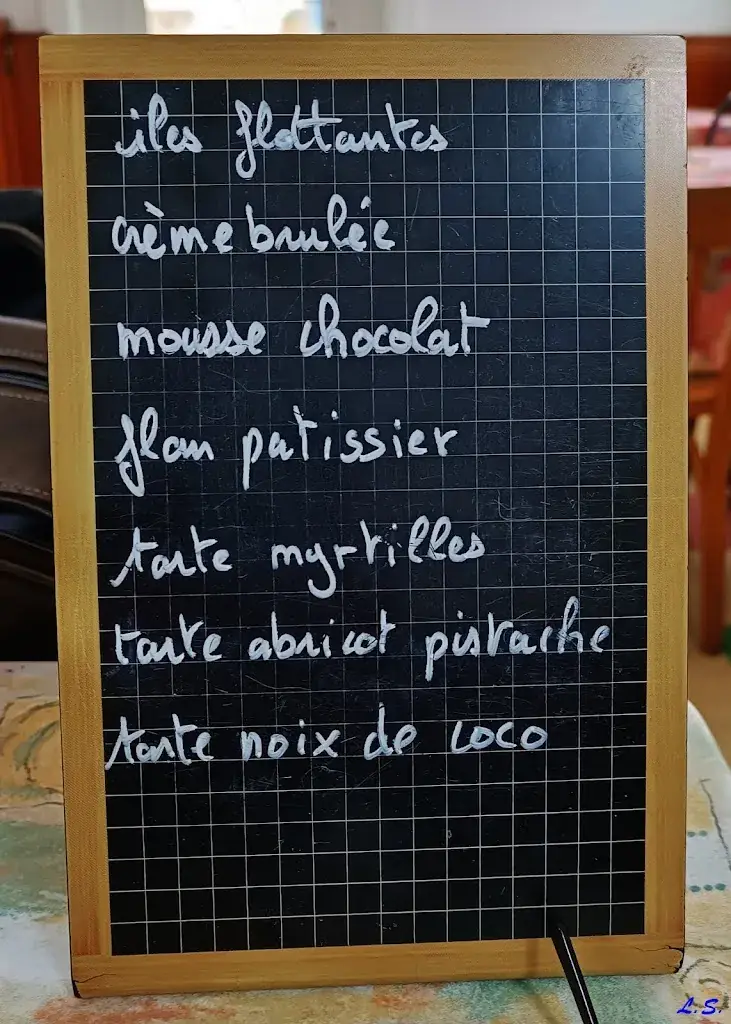 iles flottantes
crème brulée
mousse chocolat
flan patissier
tarte myrtilles
tarte abricot pistache
tarte noix de coco
L.S.